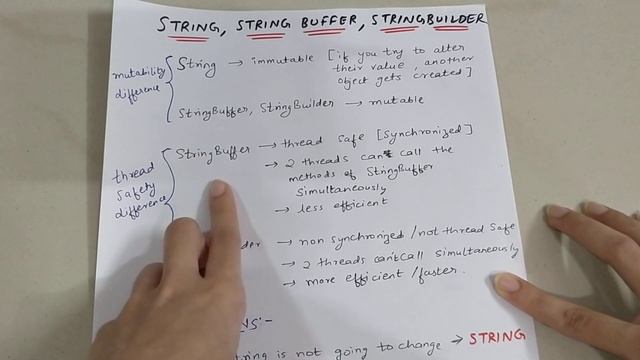 STRING, STRING BUFFER, STRINGBUILDER
mutability
difference
String → immutable [if you try to alter
their value, another
object gets created]
StringBuffer, StringBuilder → mutable
thread
safety
difference
StringBuffer → thread safe [synchronized]
→ 2 threads can't call the
methods of StringBuffer
simultaneously
→ less efficient
der → non synchronized/not thread safe
→ 2 threads can't call simultaneously
→ more efficient/faster.
NS:-
tring is not going to change → STRING